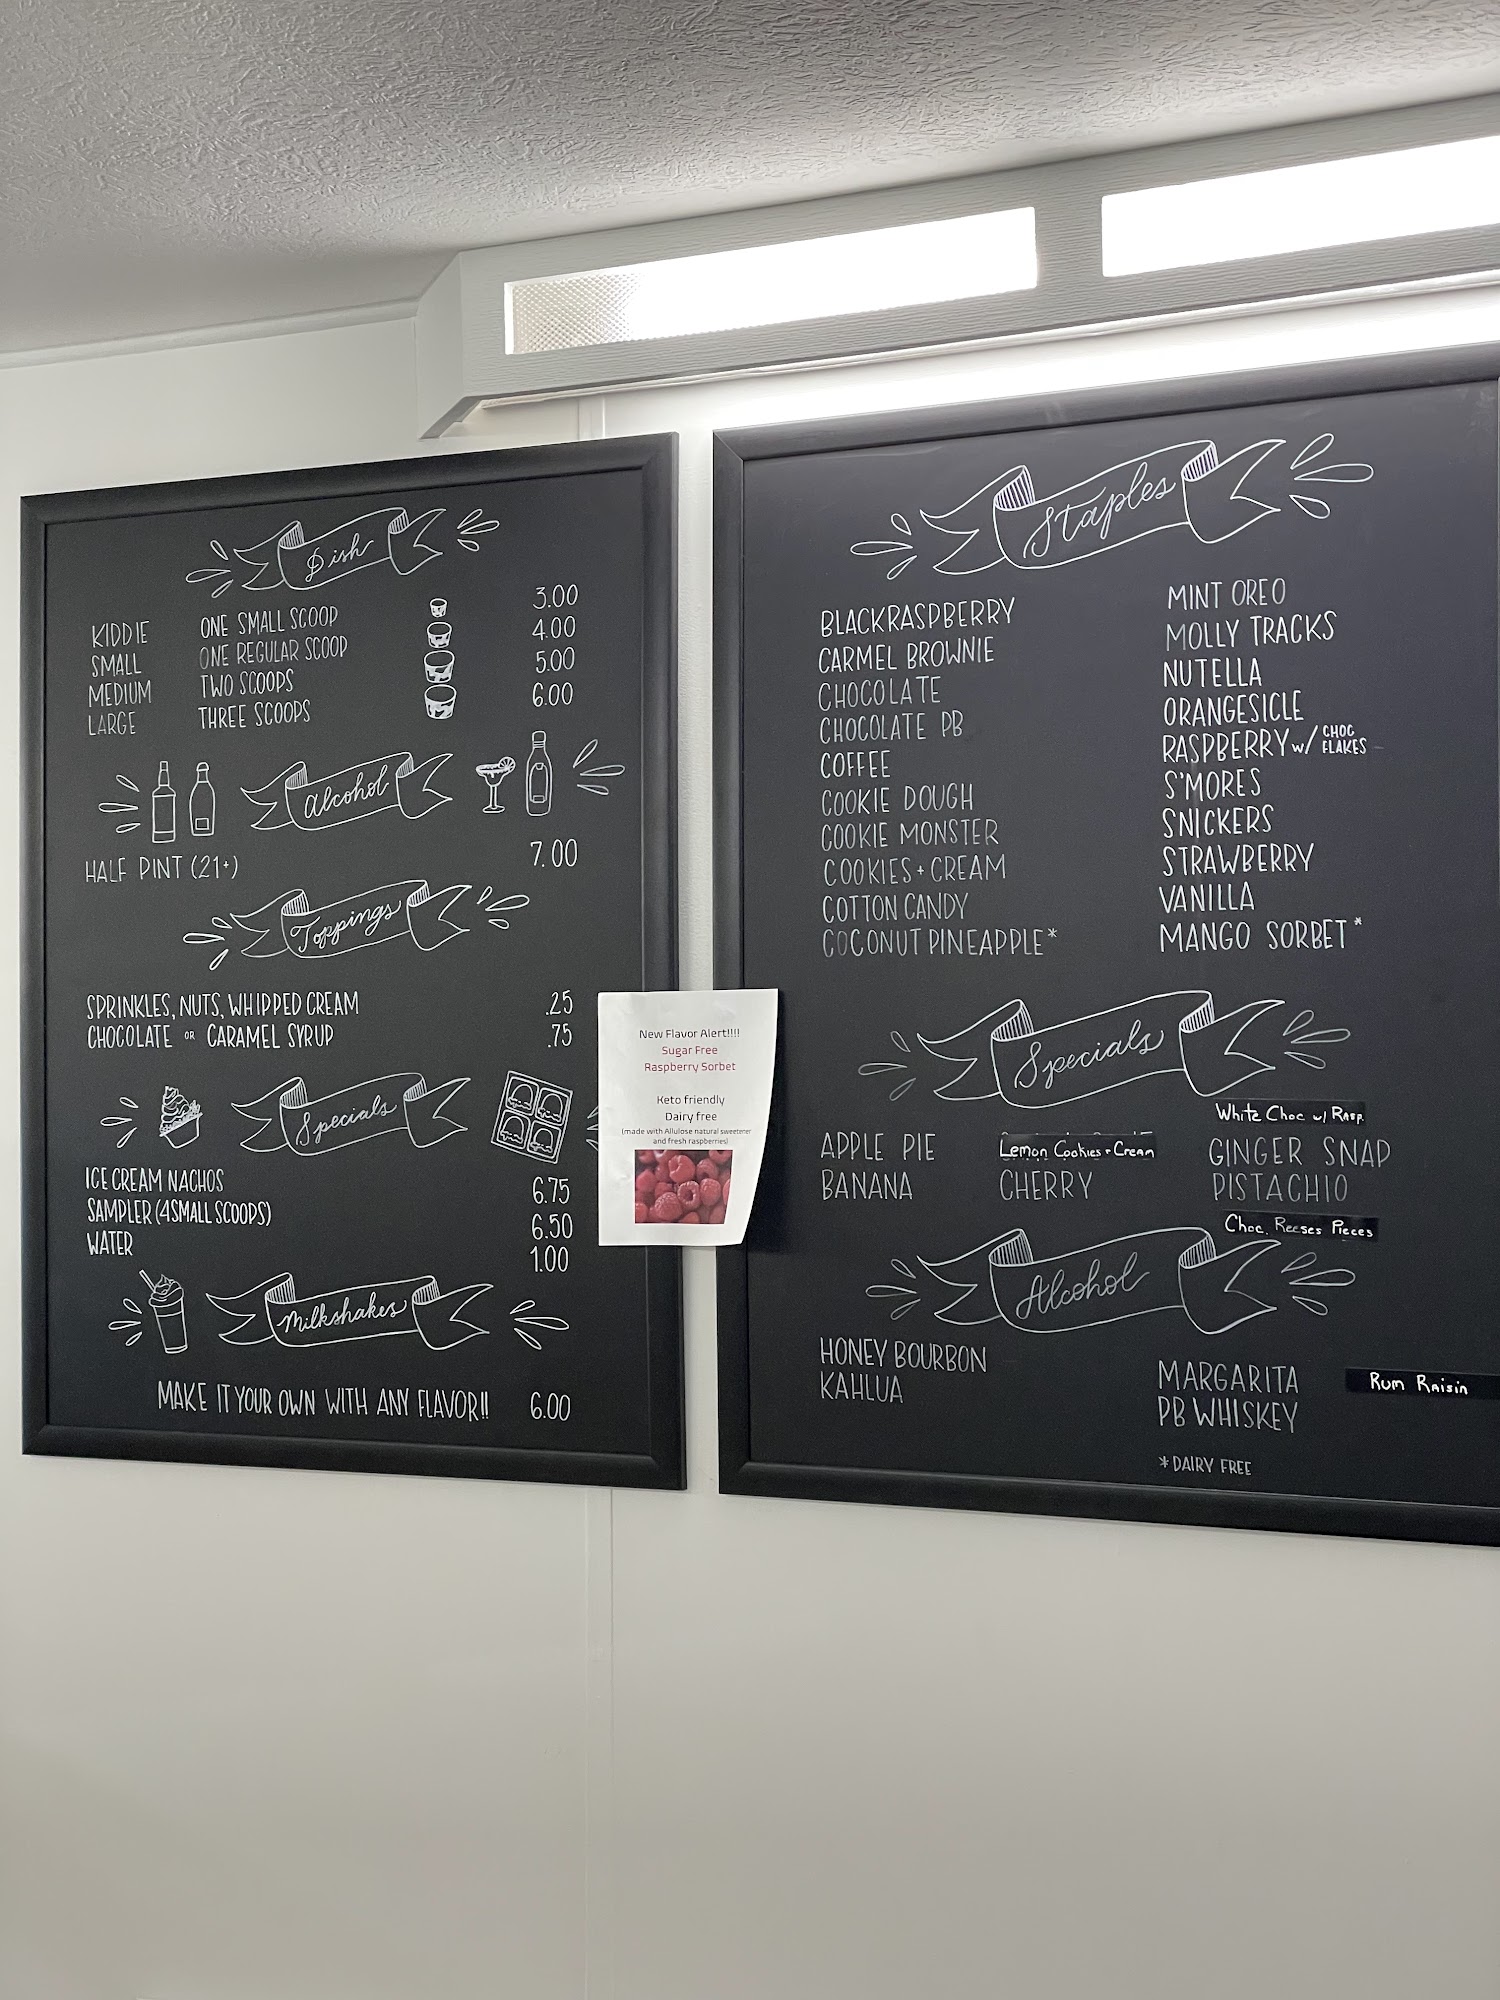 Dish
KIDDIE ONE SMALL SCOOP 3.00
SMALL ONE REGULAR SCOOP 4.00
MEDIUM TWO SCOOPS 5.00
LARGE THREE SCOOPS 6.00
Alcohol
HALF PINT (21+) 7.00
Toppings
SPRINKLES, NUTS, WHIPPED CREAM .25
CHOCOLATE OR CARAMEL SYRUP .75
Specials
ICE CREAM NACHOS 6.75
SAMPLER (4 SMALL SCOOPS) 6.50
WATER 1.00
Milkshakes
MAKE IT YOUR OWN WITH ANY FLAVOR!! 6.00
New Flavor Alert!!!!
Sugar Free
Raspberry Sorbet
Keto friendly
Dairy free
(made with Allulose natural sweetener
and fresh raspberries)
Staples
BLACKRASPBERRY
CARMEL BROWNIE
CHOCOLATE
CHOCOLATE PB
COFFEE
COOKIE DOUGH
COOKIE MONSTER
COOKIES + CREAM
COTTON CANDY
COCONUT PINEAPPLE*
MINT OREO
MOLLY TRACKS
NUTELLA
ORANGESICLE
RASPBERRY w/ CHOC FLAKES
S'MORES
SNICKERS
STRAWBERRY
VANILLA
MANGO SORBET*
Specials
White Choc w/ Rasp.
APPLE PIE Lemon Cookies + Cream GINGER SNAP
BANANA CHERRY PISTACHIO
Choc. Reeses Pieces
Alcohol
HONEY BOURBON
KAHLUA
MARGARITA Rum Raisin
PB WHISKEY
*DAIRY FREE